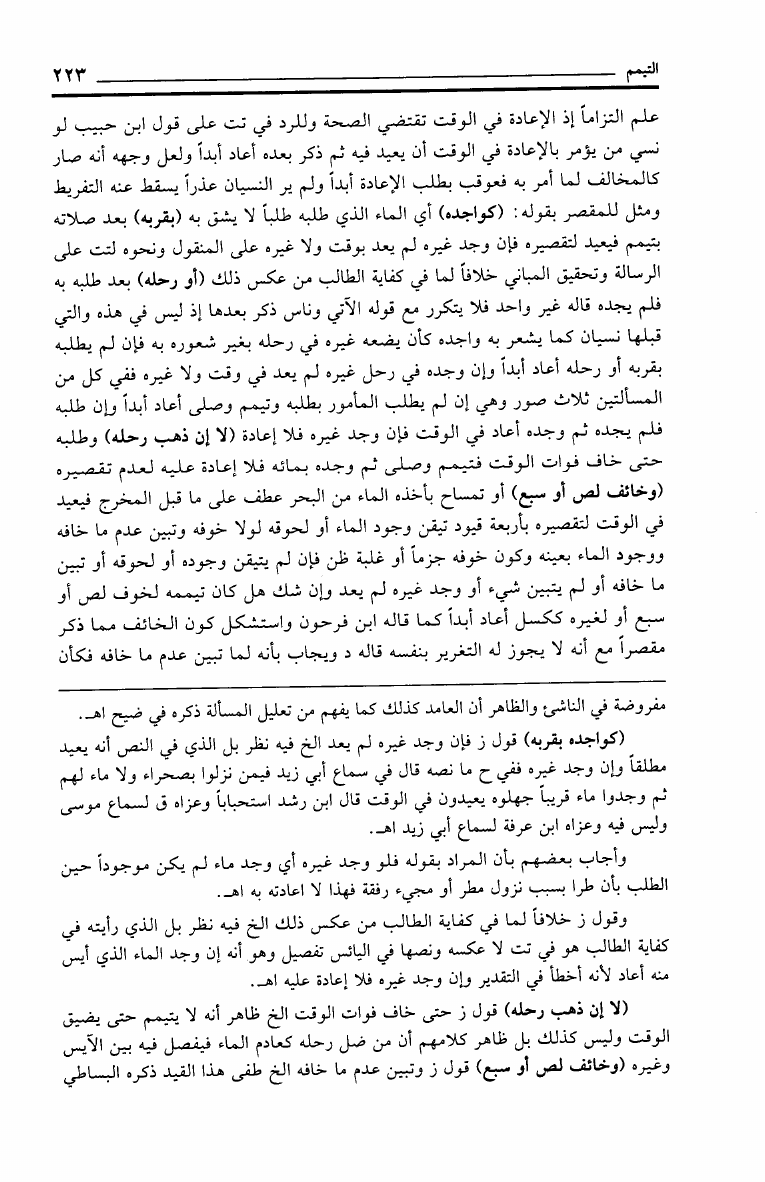 التيمم ٢٢٣
علم التزاماً إذ الإعادة في الوقت تقتضي الصحة وللرد في تت على قول ابن حبيب لو
نسي من يؤمر بالإعادة في الوقت أن يعيد فيه ثم ذكر بعده أعاد أبداً ولعل وجهه أنه صار
كالمخالف لما أمر به فعوقب بطلب الإعادة أبداً ولم ير النسيان عذراً يسقط عنه التفريط
ومثل للمقصر بقوله: (كواجده) أي الماء الذي طلبه طلباً لا يشق به (بقربه) بعد صلاته
بتيمم فيعيد لتقصيره فإن وجد غيره لم يعد بوقت ولا غيره على المنقول ونحوه لتت على
الرسالة وتحقيق المباني خلافاً لما في كفاية الطالب من عكس ذلك (أو رحله) بعد طلبه به
فلم يجده قاله غير واحد فلا يتكرر مع قوله الآتي وناس ذكر بعدها إذ ليس في هذه والتي
قبلها نسيان كما يشعر به واجده كأن يضعه غيره في رحله بغير شعوره به فإن لم يطلبه
بقربه أو رحله أعاد أبداً وإن وجده في رحل غيره لم يعد في وقت ولا غيره ففي كل من
المسألتين ثلاث صور وهي إن لم يطلب المأمور بطلبه وتيمم وصلى أعاد أبداً وإن طلبه
فلم يجده ثم وجده أعاد في الوقت فإن وجد غيره فلا إعادة (لا إن ذهب رحله) وطلبه
حتى خاف فوات الوقت فتيمم وصلى ثم وجده بمائه فلا إعادة عليه لعدم تقصيره
(وخائف لص أو سبع) أو تمساح بأخذه الماء من البحر عطف على ما قبل المخرج فيعيد
في الوقت لتقصيره بأربعة قيود تيقن وجود الماء أو لحوقه لولا خوفه وتبين عدم ما خافه
ووجود الماء بعينه وكون خوفه جزماً أو غلبة ظن فإن لم يتيقن وجوده أو لحوقه أو تبين
ما خافه أو لم يتبين شيء أو وجد غيره لم يعد وإن شك هل كان تيممه لخوف لص أو
سبع أو لغيره ككسل أعاد أبداً كما قاله ابن فرحون واستشكل كون الخائف مما ذكر
مقصراً مع أنه لا يجوز له التغرير بنفسه قاله د ويجاب بأنه لما تبين عدم ما خافه فكأن
مفروضة في الناشئ والظاهر أن العامد كذلك كما يفهم من تعليل المسألة ذكره في ضيح اهـ.
(كواجده بقربه) قول ز فإن وجد غيره لم يعد الخ فيه نظر بل الذي في النص أنه يعيد
مطلقاً وإن وجد غيره ففي ح ما نصه قال في سماع أبي زيد فيمن نزلوا بصحراء ولا ماء لهم
ثم وجدوا ماء قريباً جهلوه يعيدون في الوقت قال ابن رشد استحباباً وعزاه ق لسماع موسى
وليس فيه وعزاه ابن عرفة لسماع أبي زيد اهـ.
وأجاب بعضهم بأن المراد بقوله فلو وجد غيره أي وجد ماء لم يكن موجوداً حين
الطلب بأن طرا بسبب نزول مطر أو مجيء رفقة فهذا لا اعادته به اهـ.
وقول ز خلافاً لما في كفاية الطالب من عكس ذلك الخ فيه نظر بل الذي رأيته في
كفاية الطالب هو في تت لا عكسه ونصها في اليائس تفصيل وهو أنه إن وجد الماء الذي أيس
منه أعاد لأنه أخطأ في التقدير وإن وجد غيره فلا إعادة عليه اهـ.
(لا إن ذهب رحله) قول ز حتى خاف فوات الوقت الخ ظاهر أنه لا يتيمم حتى يضيق
الوقت وليس كذلك بل ظاهر كلامهم أن من ضل رحله كعادم الماء فيفصل فيه بين الآيس
وغيره (وخائف لص أو سبع) قول ز وتبين عدم ما خافه الخ طفى هذا القيد ذكره البساطي